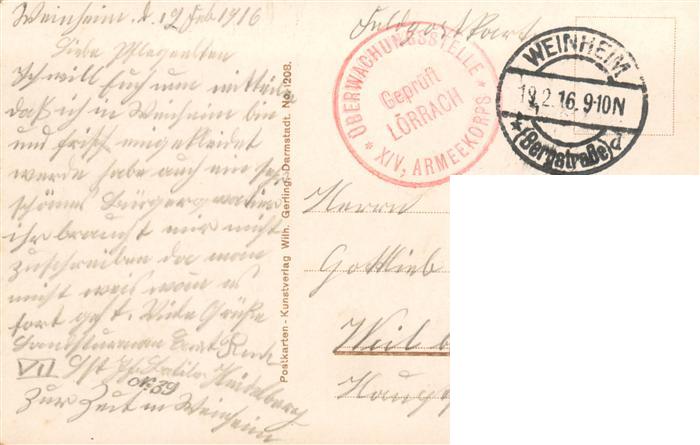 Weinheim d 19 Feb 1916
Liebe Pflegeeltern
Ich will Euch nun mitteilen
daß ich in Weinheim bin
und frisch eingekleidet
werde habe auch ein sehr
schönes Bürgerquartier
ihr braucht mir nicht
zuschreiben da man
nicht weis wan es
fort geht. Viele Grüße
Landsturmman
VII Heidelberg
No 39
Zur Zeit in Weinheim
Postkarten - Kunstverlag Wilh. Gerling, Darmstadt. No. 1208.
Feldpostkart
ÜBERWACHUNGSSTELLE
Geprüft
LÖRRACH
XIV, ARMEEKORPS
WEINHEIM
19.2.16. 9-10N
(Bergstraße) d
Herrn
Gottlieb